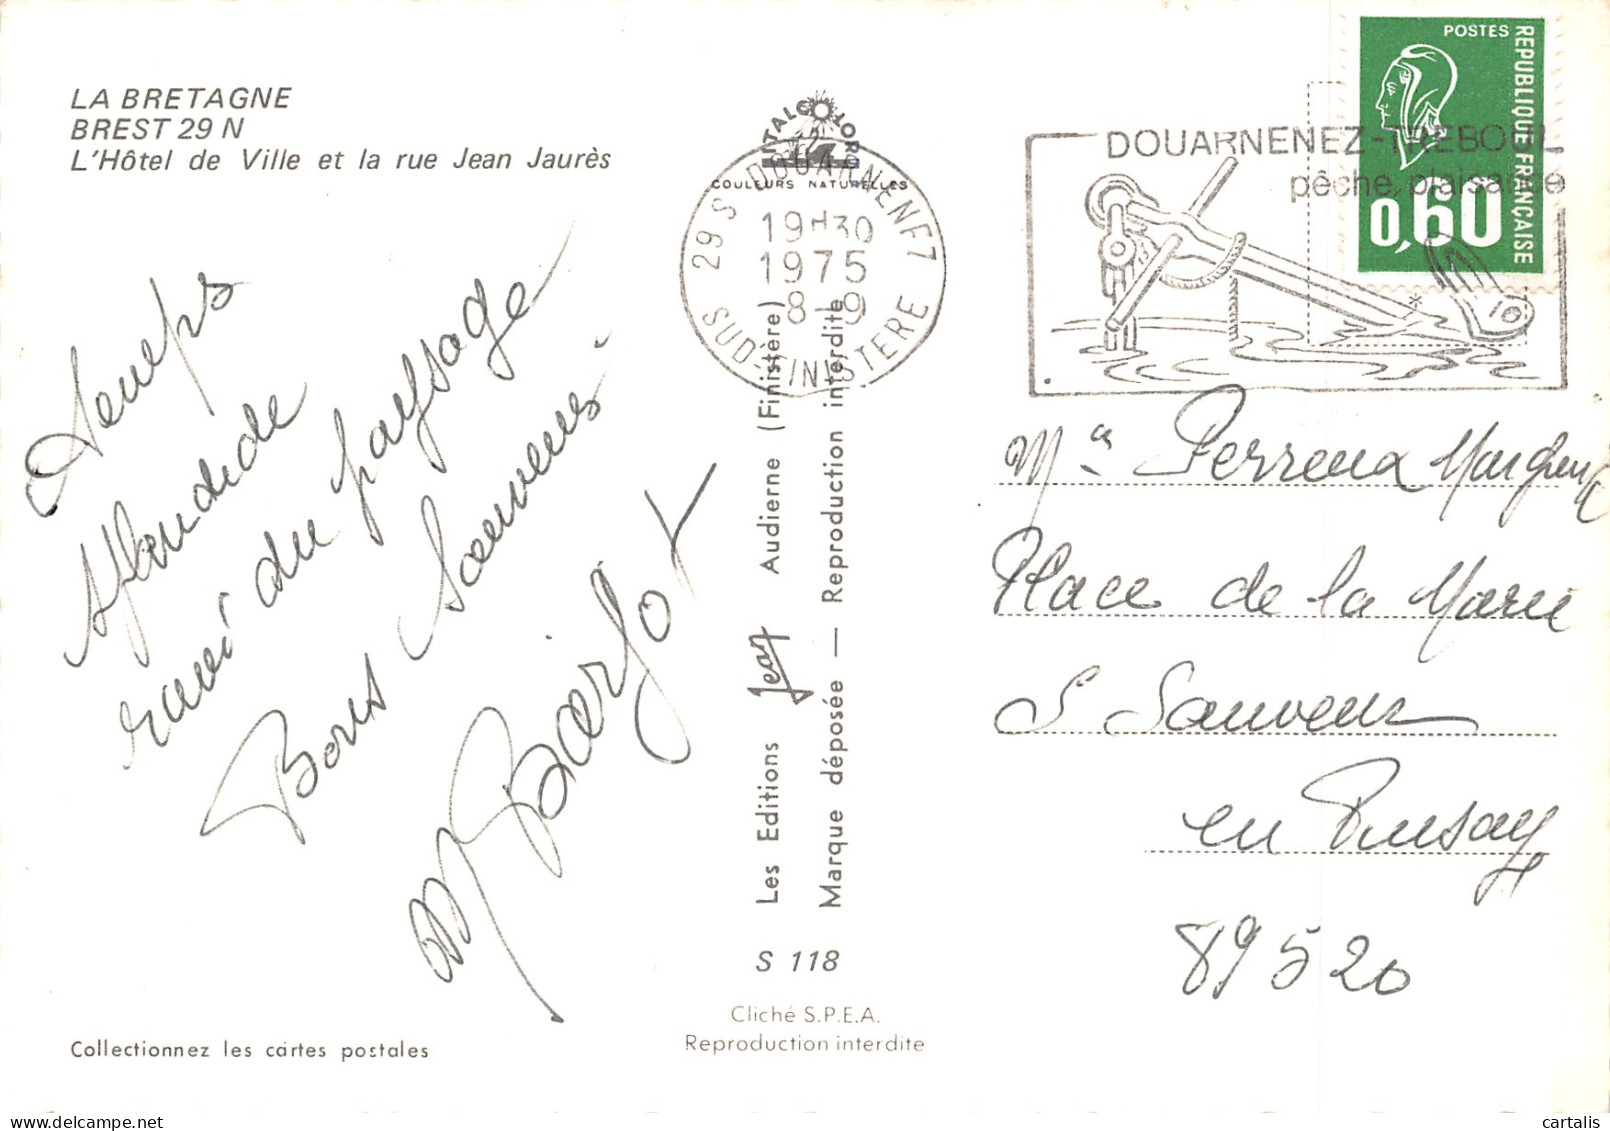 LA BRETAGNE
BREST 29 N
L'Hôtel de Ville et la rue Jean Jaurès
COULEURS NATURELLES
29 S DOUARNENEZ
19H30
1975
8-9
SUD-FINISTERE
DOUARNENEZ-TREBOUL
pêche, plaisance
POSTES
REPUBLIQUE FRANÇAISE
0,60
Temps
splendide
ravi du paysage
Bons Souvenirs
M
Les Editions Jean Audierne (Finistère)
Marque déposée — Reproduction interdite
S 118
Cliché S.P.E.A.
Reproduction interdite
Collectionnez les cartes postales
Perreux
Place de la Mairie
S Sauveur
en Puisaye
89520
cartalis